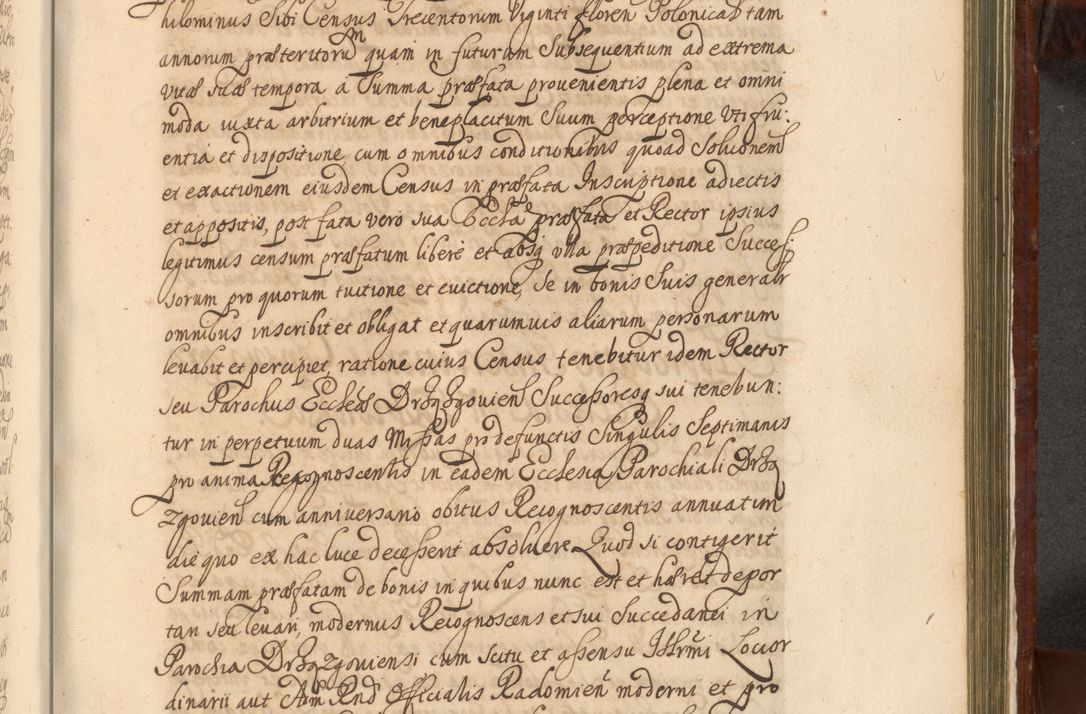 hilominus Sibi Census Trecentorum Viginti floren Polonical tam
annorum præteritorum quam in futurum Subsequentium ad extrema
vitæ suæ tempora a Summa præfata provenientis plena et omni
moda iuxta arbitrium et beneplacitum Suum perceptione Vti fru:
entia et dispositione cum omnibus conditionibus quoad Solucionem
et exactionem eiusdem Census in præfata Inscriptione adiectis
et appositis, post fata vero sua Eccla præfata et Rector ipsius
legitimus censum præfatum liberè et absq vlla præpeditione Succes:
sorum pro quorum tuitione et evictione, se in bonis Suis generalr
omnibus inscribit et obligat et quarumuis aliarum personarum
levabit et percipiet, ratione cuius Census tenebitur idem Rector
seu Parochus Ecclæ Drzązgovien Successoresq sui tenebun:
tur in perpetuum duas Missas pro defunctis Singulis Septimanis
pro anima Recognoscentis in eadem Ecclesia Parochiali Drzą
zgovien cum anniversario obitus Recognoscentis annuatim
die quo ex hac luce decesserit absoluere Quod si contigerit
Summam præfatam de bonis in quibus nunc est et hæret depor
tari seu levari, modernus Recognoscens et sui Succedanei in
Parochia Drzązgoviensi cum scitu et assensu Illrmi Locior
dinarii aut Adm Rnd Officialis Radomien moderni et pro